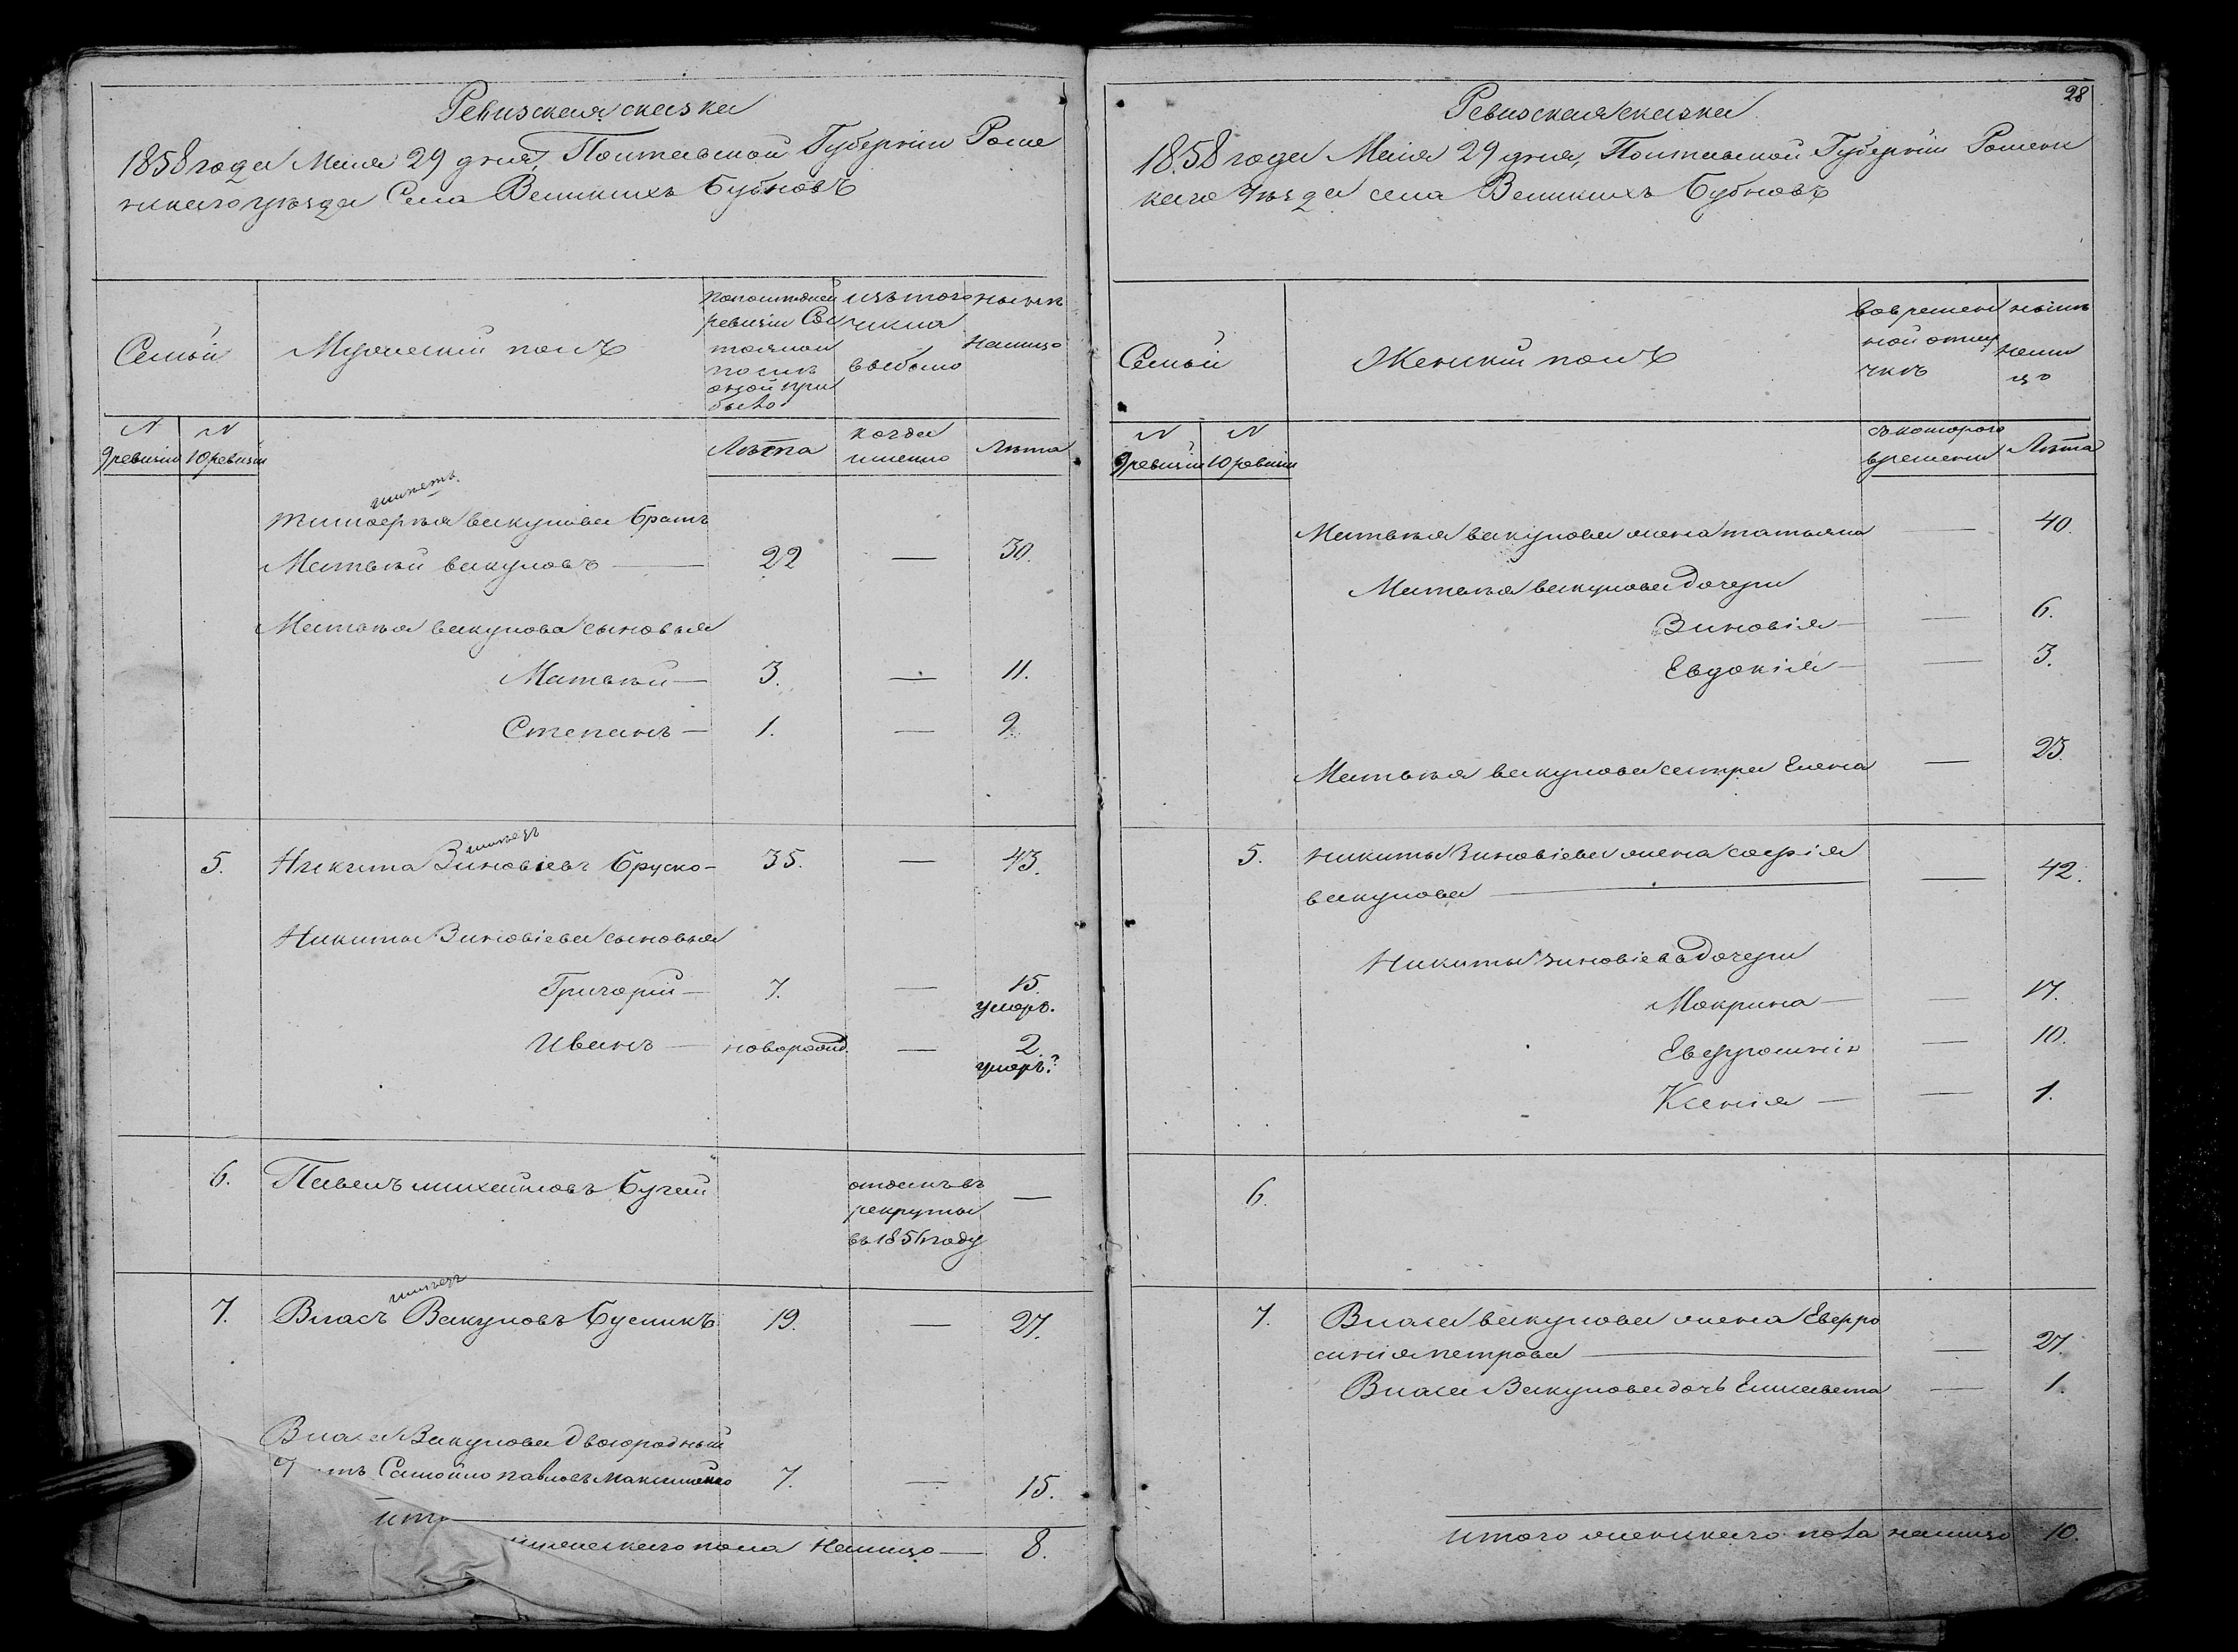 Ревизская сказка
1858 года Мая 29 дня, Полтавской Губернии Роме
нскаго уѣзда Села Великихъ Бубновъ
Семьи
Мужеский полъ
По последней
ревизии Сос
тояло и
после
оной при
было
изъ того
числа
выбыло
ныне
налицо
N
9 ревизии
N
10 ревизии
Лѣта
когда
именно
Лѣта
Тимоѳея Вакулова братъ
Матвѣй Вакуловъ — 22 — 30.
Матвѣя Вакулова сыновья
Матвѣй — 3. — 11.
Степанъ — 1. — 9.
5. Никита Зиновіевъ Бруско- 35. — 43.
Никиты Зиновіева сыновья
Григорій — 7. — 15.
умеръ.
Иванъ — новорожд. — 2.
умеръ?
6. Павелъ Михайловъ Бугай
отданъ въ
рекруты
въ 1851 году
—
7. Власъ Вакуловъ Буслыкъ 19. — 27.
Власа Вакулова двоюродный
Самойло Павловъ Максименко 7. — 15.
мужескаго пола налицо — 8.
28
Ревизская сказка
1858 года Мая 29 дня, Полтавской Губерніи Роменс
каго Уѣзда села Великихъ Бубновъ
Семьи
Женский полъ
во времен
ной отлу
чкѣ
нынѣ
нали
цо
N
9 ревизіи
N
10 ревизіи
съ котораго
времени
Лѣта
Матвѣя Вакулова жена Татьяна — 40.
Матвѣя Вакулова дочери
Зиновія — — 6.
Евдокія — — 3.
Матвѣя Вакулова сестра Елена — 23.
5. Никиты Зиновіева жена Софія
Вакулова — — 42.
Никиты Зиновіева дочери
Мокрина — — 17.
Евфросинія — 10.
Ксенія — — 1.
6.
7. Власа Вакулова жена Евфро
синія Петрова — — 27.
Власа Вакулова дочь Елисавета — 1.
Итого женскаго пола налицо 10.